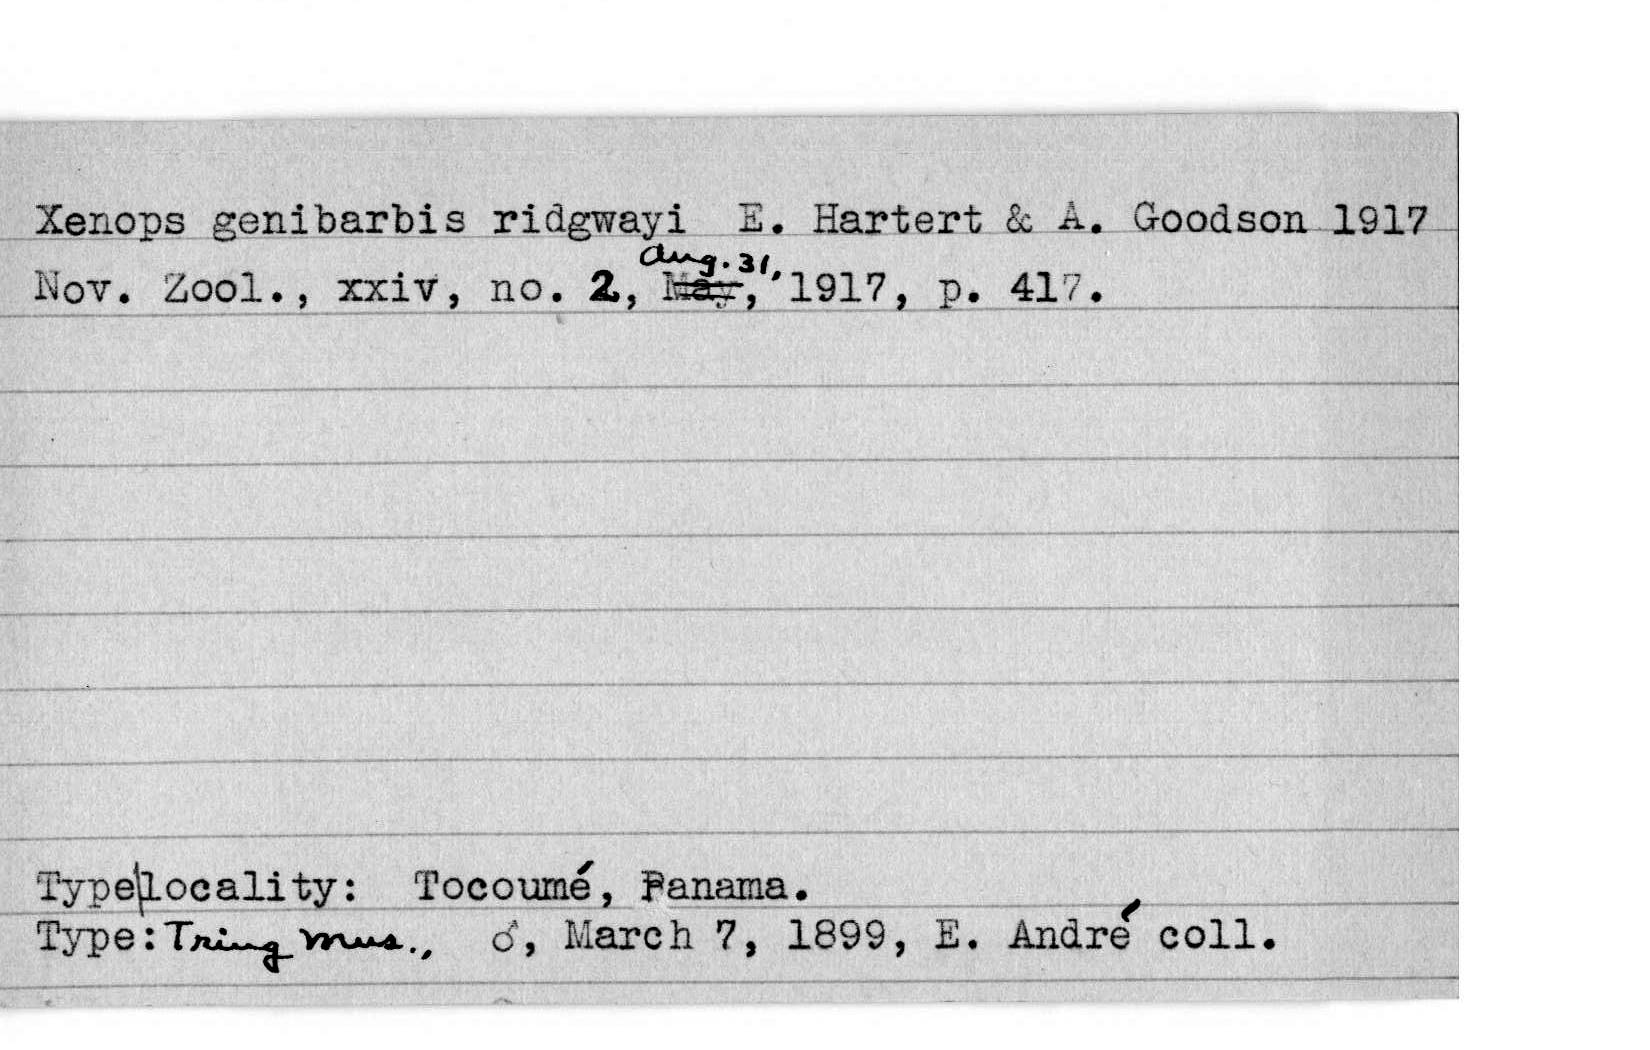 Xenops genibarbis ridgwayi E. Hartert & A. Goodson 1917
Nov. Zool., xxiv, no. 2, Aug. 31, May, 1917, p. 417.
Type locality: Tocoumé, Panama.
Type: Tring Mus., ♂, March 7, 1899, E. André coll.